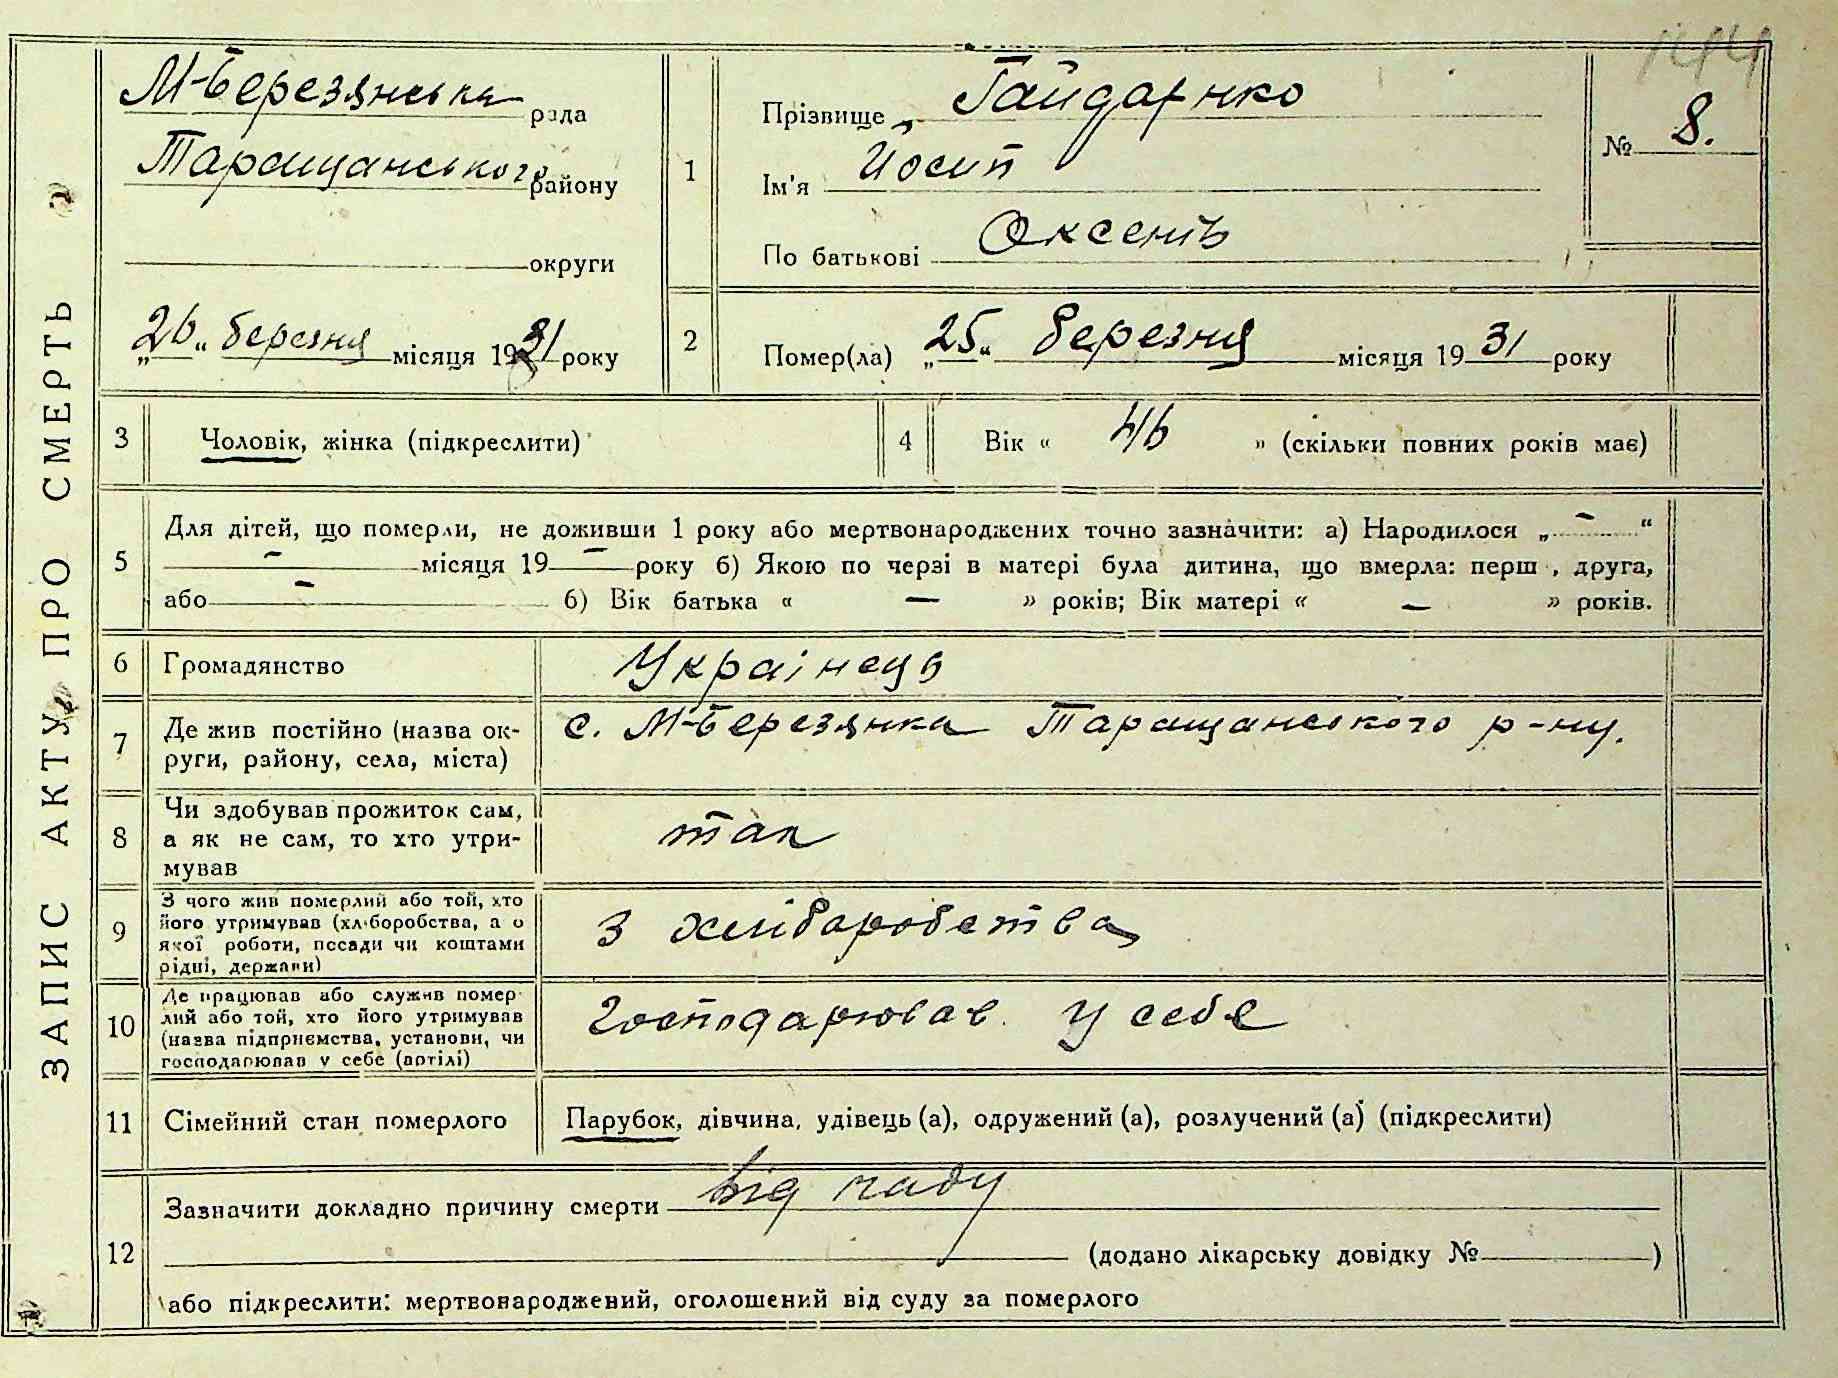 144
ЗАПИС АКТУ ПРО СМЕРТЬ
М-Березянська рада
Таращанського району
округи
„26" березня місяця 1931 року
1
Прізвище Гайдарнко
Ім'я Йосип
По батькові Оксенів
№ 8.
2
Помер(ла) „25" березня місяця 1931 року
3
Чоловік, жінка (підкреслити)
4
Вік « 46 » (скільки повних років має)
5
Для дітей, що померли, не доживши 1 року або мертвонароджених точно зазначити: а) Народилося „ - "
- місяця 19 - року б) Якою по черзі в матері була дитина, що вмерла: перш , друга,
або - б) Вік батька « — » років; Вік матері « — » років.
6
Громадянство
Украінець
7
Де жив постійно (назва ок-
руги, району, села, міста)
с. М-Березянка Таращанського р-ну.
8
Чи здобував прожиток сам,
а як не сам, то хто утри-
мував
так
9
З чого жив померлий або той, хто
його утримував (хліборобства, а о
якої роботи, посади чи коштами
рідні, держави)
З хлібаробства
10
Де працював або служив помер-
лий або той, хто його утримував
(назва підприємства, установи, чи
господарював у себе (артілі)
Господарював у себе
11
Сімейний стан померлого
Парубок, дівчина, удівець (а), одружений (а), розлучений (а) (підкреслити)
12
Зазначити докладно причину смерти від чаду
(додано лікарську довідку № )
або підкреслити: мертвонароджений, оголошений від суду за померлого